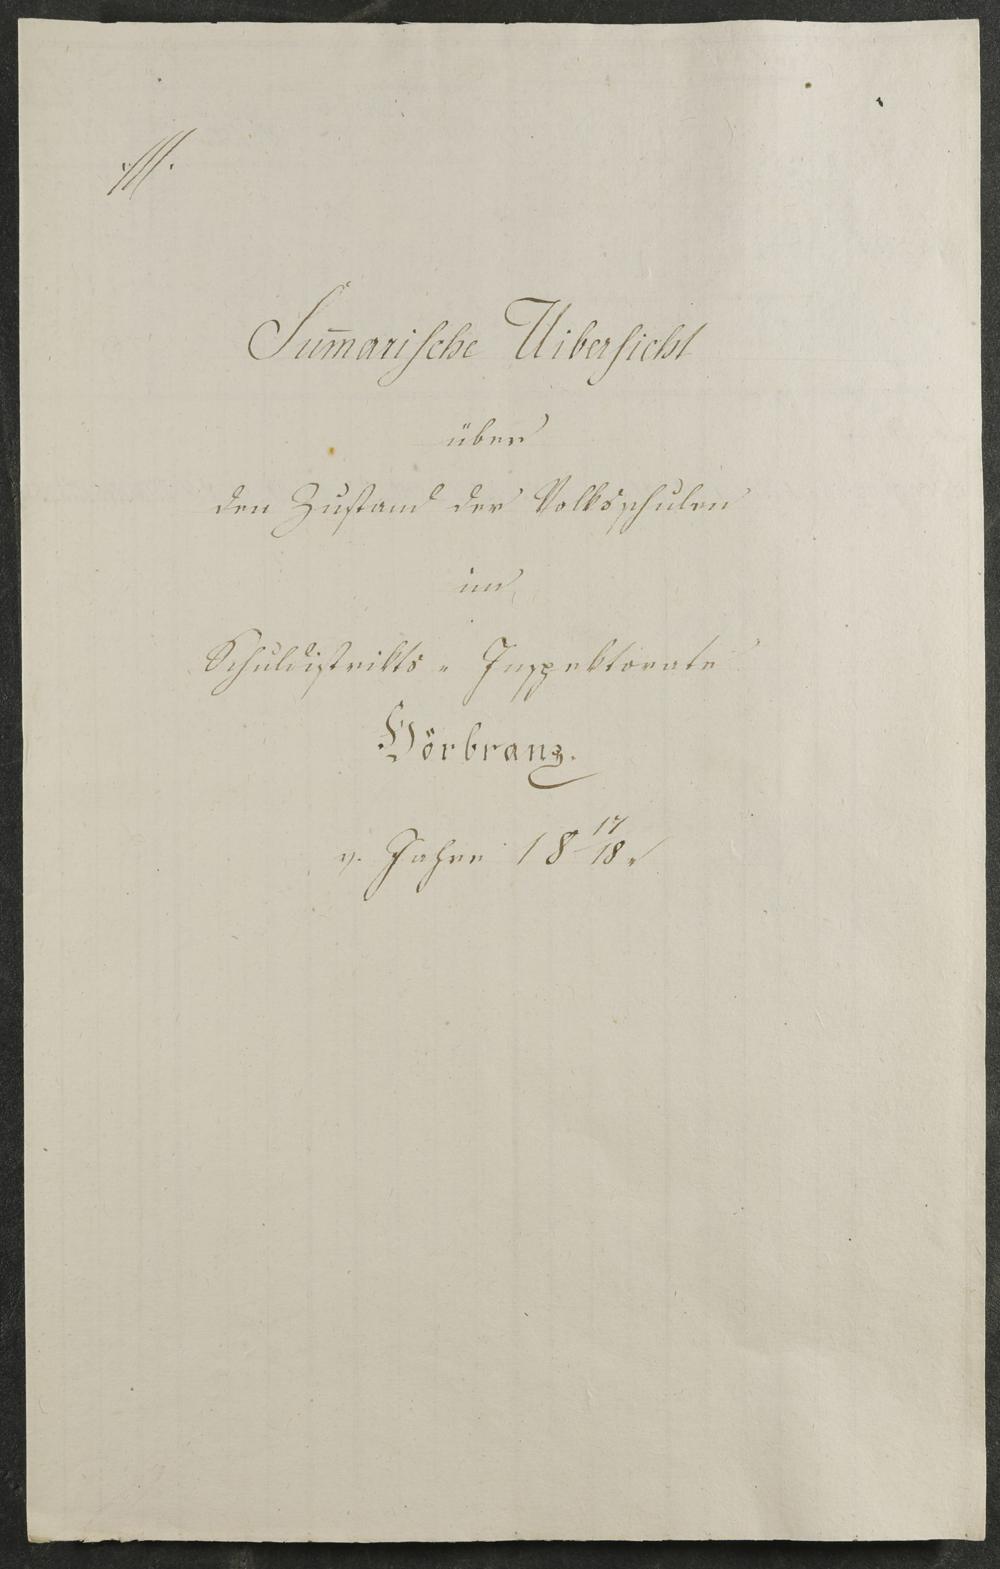 ·///.
Sum̅arische Uibersicht
über
den Zustand der Volksschulen
im
Schuldistrikts = Inspektorate
Hörbranz.
v. Jahre 18 17/18.